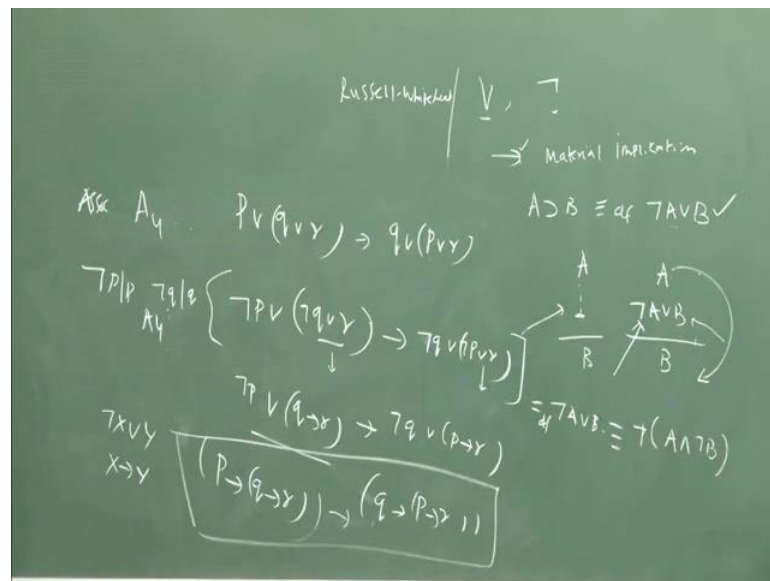 Russell-Whitehead | ∨, ¬
→ ✓ Material Implication
A ⊃ B ≡ df ¬A∨B ✓
Asso A4 P∨(q∨r) → q∨(p∨r)
¬P|P ¬q|q
A4
¬P∨(¬q∨r) → ¬q∨(¬p∨r)
A
B
A
¬A∨B
B
¬P∨(q→r) → ¬q∨(p→r)
≡ df ¬A∨B ≡ ¬(A∧¬B)
¬X∨Y
X→Y
(P→(q→r)) → (q→(P→r))